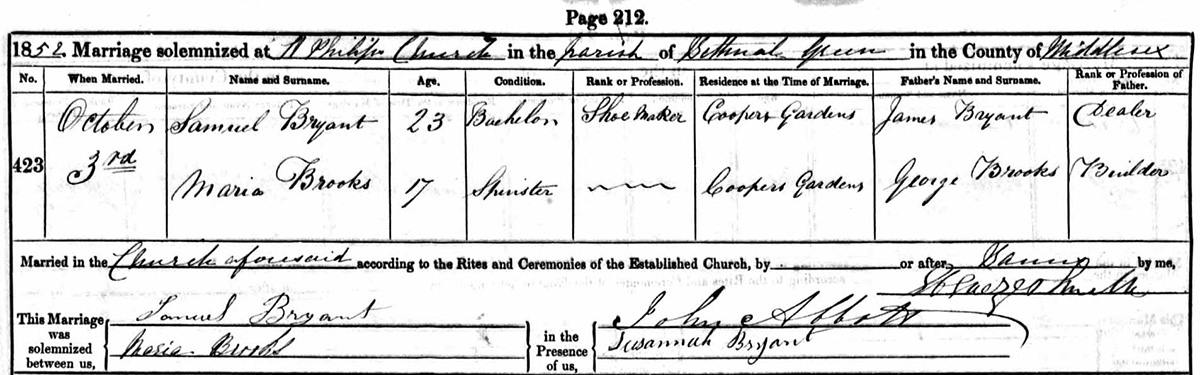 Page 212.
1852. Marriage solemnized at St Philips Church in the parish of Bethnal Green in the County of Middlesex
No. When Married. Name and Surname. Age. Condition. Rank or Profession. Residence at the Time of Marriage. Father's Name and Surname. Rank or Profession of Father.
October Samuel Bryant 23 Bachelor Shoe Maker Coopers Gardens James Bryant Dealer
423 3rd Maria Brooks 17 Spinster Coopers Gardens George Brooks Builder
Married in the Church aforesaid according to the Rites and Ceremonies of the Established Church, by or after Banns by me,
This Marriage was solemnized between us, Samuel Bryant in the Presence of us, John Abbott
Maria Brooks Susannah Bryant